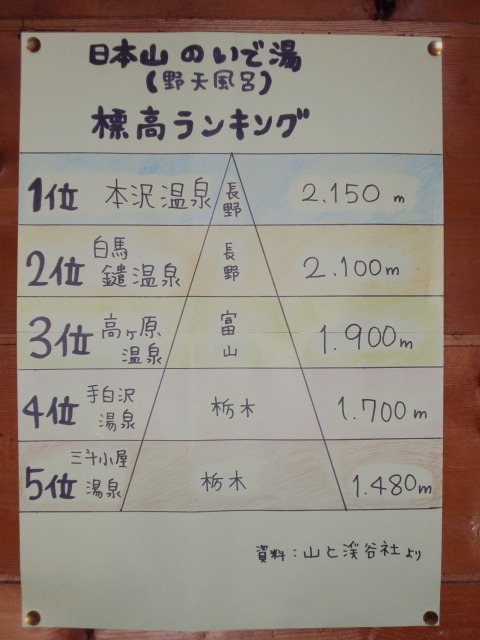 日本山のいで湯
(野天風呂)
標高ランキング
1位 本沢温泉 長野 2.150m
2位 白馬鑓温泉 長野 2.100m
3位 高ヶ原温泉 富山 1.900m
4位 手白沢湯泉 栃木 1.700m
5位 三斗小屋湯泉 栃木 1.480m
資料:山と渓谷社より